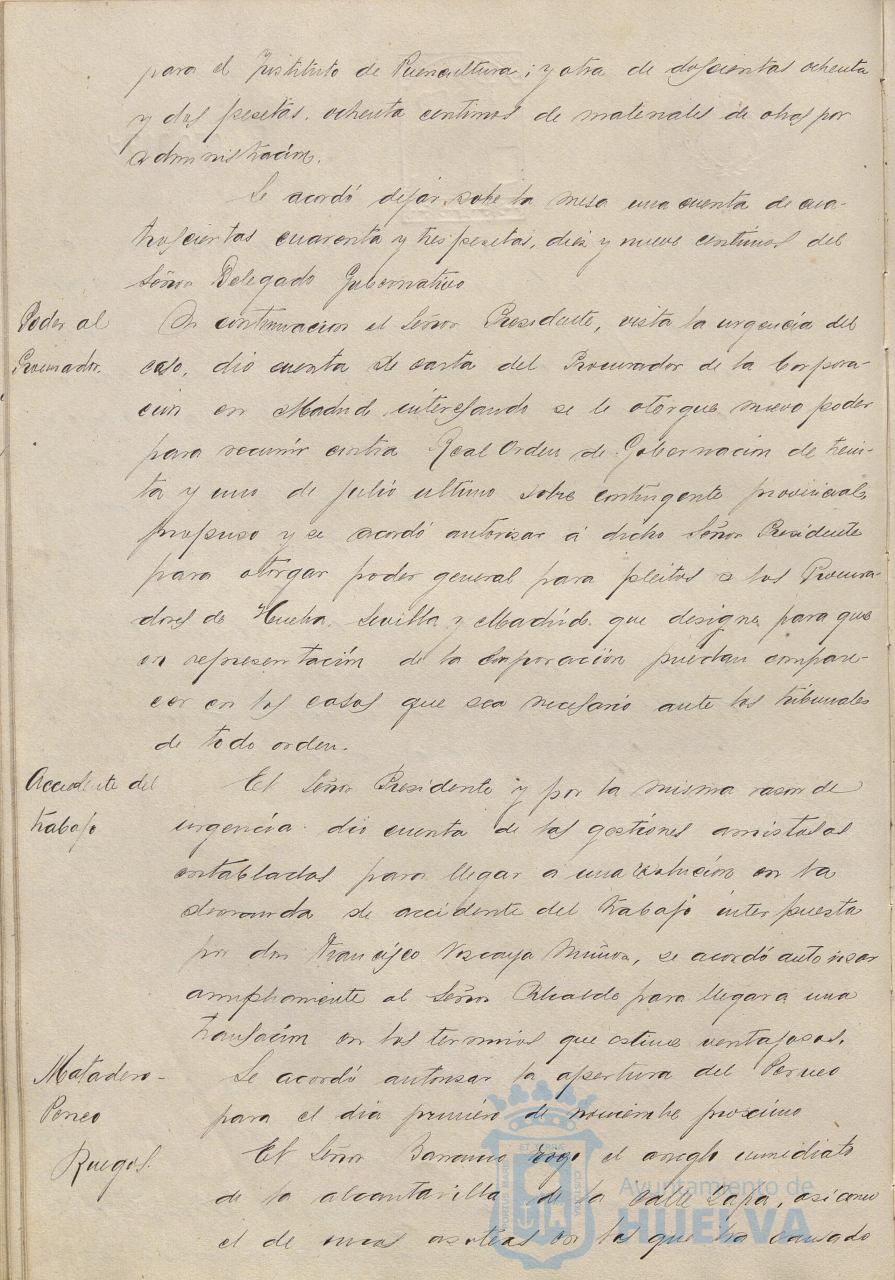 para el Instituto de Puericultura; y otra de doscientas ochenta
y dos pesetas, ochenta centimos de materiales de obras por
administración.
Se acordó dejar sobre la mesa una cuenta de cua-
troscientas cuarenta y tres pesetas, diez y nueve centimos del
Señor Delegado Gubernativo
Poder al
Procurador.
A continuacion el Señor Presidente, vista la urgencia del
caso, dió cuenta de carta del Procurador de la Corpora-
cion en Madrid interesando se le otorgue nuevo poder
para recurrir contra Real Orden de Gobernacion de trein-
ta y uno de julio ultimo sobre contingente provincial,
propuso y se acordó autorizar á dicho Señor Presidente
para otorgar poder general para pleitos a los Procura-
dores de Huelva, Sevilla y Madrid que designe para que
en representación de la Corporación puedan compare-
cer en los casos que sea necesario ante los tribunales
de todo orden.
Accidente del
trabajo
El Señor Presidente y por la misma razon de
urgencia dió cuenta de las gestiones amistosas
entabladas para llegar a una solución en la
demanda de accidente del trabajo interpuesta
por don Francisco Vizcaya Muñoz, se acordó autorizar
ampliamente al Señor Alcalde para llegar a una
transación en los terminos que estime ventajosos.
Matadero-
Porneo
Se acordó autorizar la apertura del Perneo
para el dia primero de noviembre proximo
Ruegos.
El Señor Barranco rogo el arreglo inmediato
de la alcantarilla de la Calle Zafra, asi como
el de unas azoteas en las que ha causado
Ayuntamiento de
HUELVA